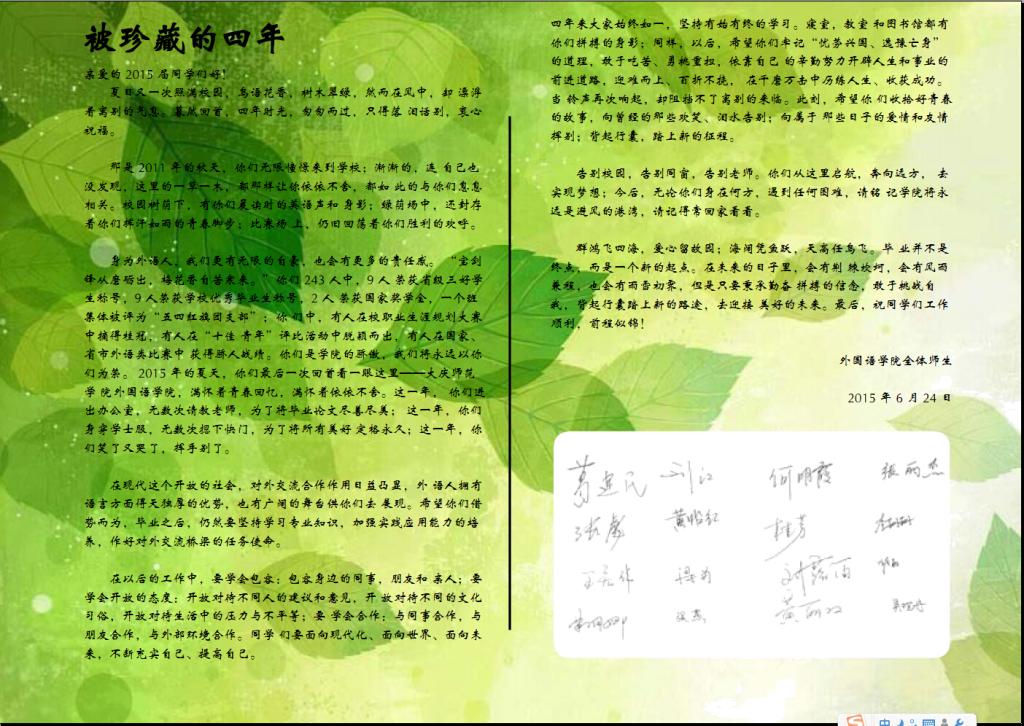 被珍藏的四年
亲爱的 2015 届同学们好！
夏日又一次照满校园，鸟语花香，树木翠绿，然而在风中，却 漂浮
着离别的气息。蓦然回首，四年时光，匆匆而过，只得落 泪话别，衷心
祝福。
那是 2011 年的秋天，你们无限憧憬来到学校；渐渐的，连 自己也
没发现，这里的一草一木，都那样让你依依不舍，都如 此的与你们息息
相关。校园树荫下，有你们晨读时的美语声和 身影；绿荫场中，还封存
着你们挥汗如雨的青春脚步；比赛场 上，仍旧回荡着你们胜利的欢呼。
身为外语人，我们更有无限的自豪，也会有更多的责任感。 “宝剑
锋从磨砺出，梅花香自苦寒来。” 你们 243 人中，9 人 荣获省级三好学
生称号，9 人荣获学校优秀毕业生称号，2 人 荣获国家奖学金，一个班
集体被评为“五四红旗团支部”；你 们中，有人在校职业生涯规划大赛
中摘得桂冠，有人在“十佳 青年”评比活动中脱颖而出，有人在国家、
省市外语类比赛中 获得骄人战绩。你们是学院的骄傲，我们将永远以你
们为荣。 2015 年的夏天，你们最后一次回首看一眼这里——大庆师范
学 院外国语学院，满怀着青春回忆，满怀着依依不舍。这一年， 你们进
出办公室，无数次请教老师，为了将毕业论文尽善尽美； 这一年，你们
身穿学士服，无数次摁下快门，为了将所有美好 定格永久；这一年，你
们笑了又哭了，挥手别了。
在现代这个开放的社会，对外交流合作作用日益凸显，外 语人拥有
语言方面得天独厚的优势，也有广阔的舞台供你们去 展现。希望你们借
势而为，毕业之后，仍然要坚持学习专业知识，加强实践应用能力的培
养，作好对外交流桥梁的任务使命。
在以后的工作中，要学会包容；包容身边的同事，朋友和 亲人；要
学会开放的态度；开放对待不同人的建议和意见，开 放对待不同的文化
习俗，开放对待生活中的压力与不平等；要 学会合作；与同事合作，与
朋友合作，与外部环境合作。同学 们要面向现代化、面向世界、面向未
来，不断充实自己、提高自己。
四年来大家始终如一，坚持有始有终的学习。寝室，教室 和图书馆都有
你们拼搏的身影；同样，以后，希望你们牢记“忧劳兴国、逸豫亡身”
的道理，敢于吃苦、勇挑重担，依靠自己 的辛勤努力开辟人生和事业的
前进道路，迎难而上、百折不挠， 在千磨万击中历练人生、收获成功。
当 铃声再次响起，却阻挡不了离别的来临。此刻，希望你 们收拾好青春
的故事，向曾经的那些欢笑、泪水告别；向属于 那些日子的爱情和友情
挥别；背起行囊，踏上新的征程。
告别校园，告别同窗，告别老师。你们从这里启航，奔向远方， 去
实现梦想；今后，无论你们身在何方，遇到任何困难，请铭 记学院将永
远是避风的港湾，请记得常回家看看。
群鸿飞四海，爱心留故园；海阔凭鱼跃，天高任鸟飞。毕 业并不是
终点，而是一个新的起点。在未来的日子里，会有荆 棘坎坷，会有风雨
兼程，也会有雨雪初霁，但是只要秉承勤奋 拼搏的信念，敢于挑战自
我，背起行囊踏上新的路途，去迎接 美好的未来。最后，祝同学们工作
顺利，前程似锦！
外国语学院全体师生
2015 年 6 月 24 日
葛建民 刘江 何明霞 张丽杰
桂芳
中